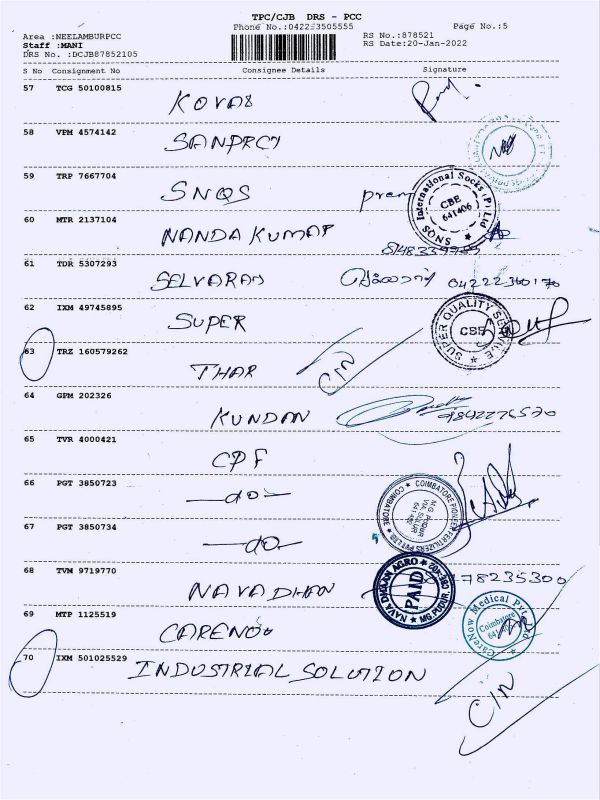 TPC/CJB DRS - PCC
Phone No.:04223505555 Page No.:5
Area :NEELAMBURPCC RS No.:878521
Staff :MANI RS Date:20-Jan-2022
DRS No. :DCJB87852105
S No Consignment No Consignee Details Signature
57 TCG 50100815 KOVAI
58 VPM 4574142
59 TRP 7667704 SNQS prem SNQS International Socks (P) Ltd CBE 641406
60 MTR 2137104 NANDA KUMAR
61 TDR 5307293 SELVARAM 04222360170
62 IXM 49745895 SUPER SUPER QUALITY SERVICE CBE
63 TRZ 160579262 THAR C/N
64 GPM 202326 KUNDAN 9842276570
65 TVR 4000421 CPF
66 PGT 3850723 —do— COIMBATORE PIONEER FERTILIZERS PVT LTD COIMBATORE
67 PGT 3850734 —do—
68 TVM 9719770 NAVADHAN NAVA DHAAN AGRO PAID MG.PUDUR 78235300
69 MTP 1125519 CARENOW CareNow Medical Pvt Ltd Coimbatore
70 IXM 501025529 INDUSTRIAL SOLUTION
C/N